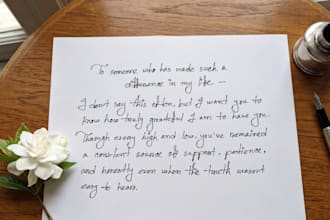 To someone who has made such a
difference in my life —
I don't say this often, but I want you to
know how truly grateful I am to have you.
Through every high and low, you've remained
a constant source of support, patience,
and honesty even when the truth wasn't
easy to hear.